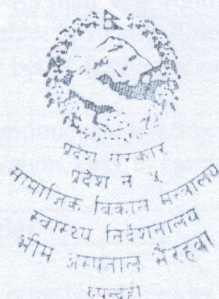 प्रदेश सरकार
प्रदेश न ५
सामाजिक विकास मन्त्रालय
स्वास्थ्य निर्देशनालय
भीम अस्पताल भैरहवा
रुपन्देही